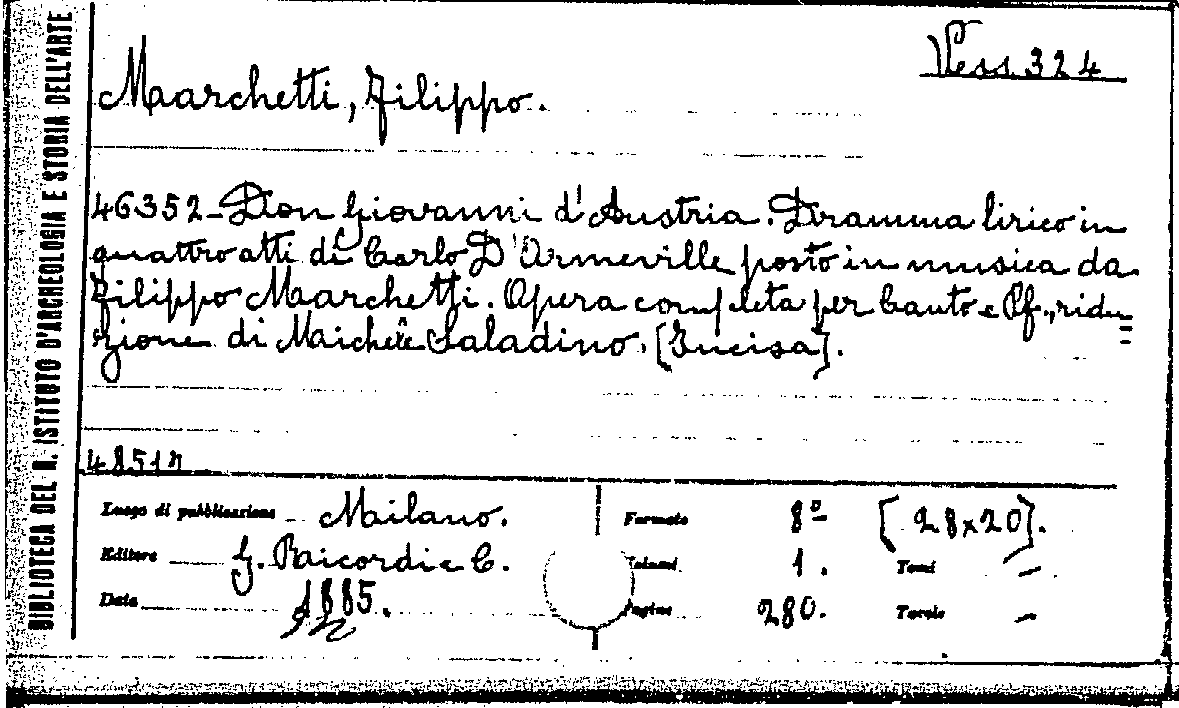 BIBLIOTECA DEL R. ISTITUTO D'ARCHEOLOGIA E STORIA DELL'ARTE
Vess. 324
Marchetti, Filippo.
46352 - Don Giovanni d'Austria. Dramma lirico in
quattro atti di Carlo D'Ormeville posto in musica da
Filippo Marchetti. Opera completa per Canto e Pf., ridu=
zione di Michele Saladino. [Incisa].
Luogo di pubblicazione Milano. Formato 8º [28x20].
Editore G. Ricordi e C. Volumi 1. Tomi –
Data 1885. Pagine 280. Tavole –